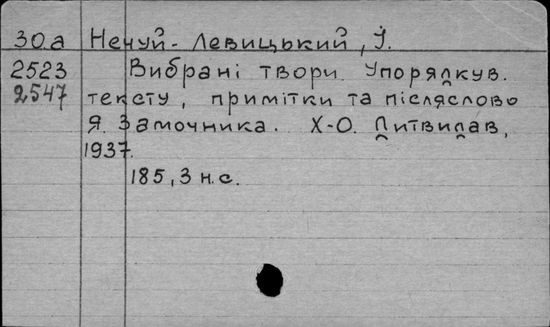 30.а Нечуй-Левицький, І.
2523 Вибрані твори. Упорядкув.
2547 тексту, примітки та післяслово
Я. Замочника. Х-О. Литвидав,
1937.
185, 3 н.с.